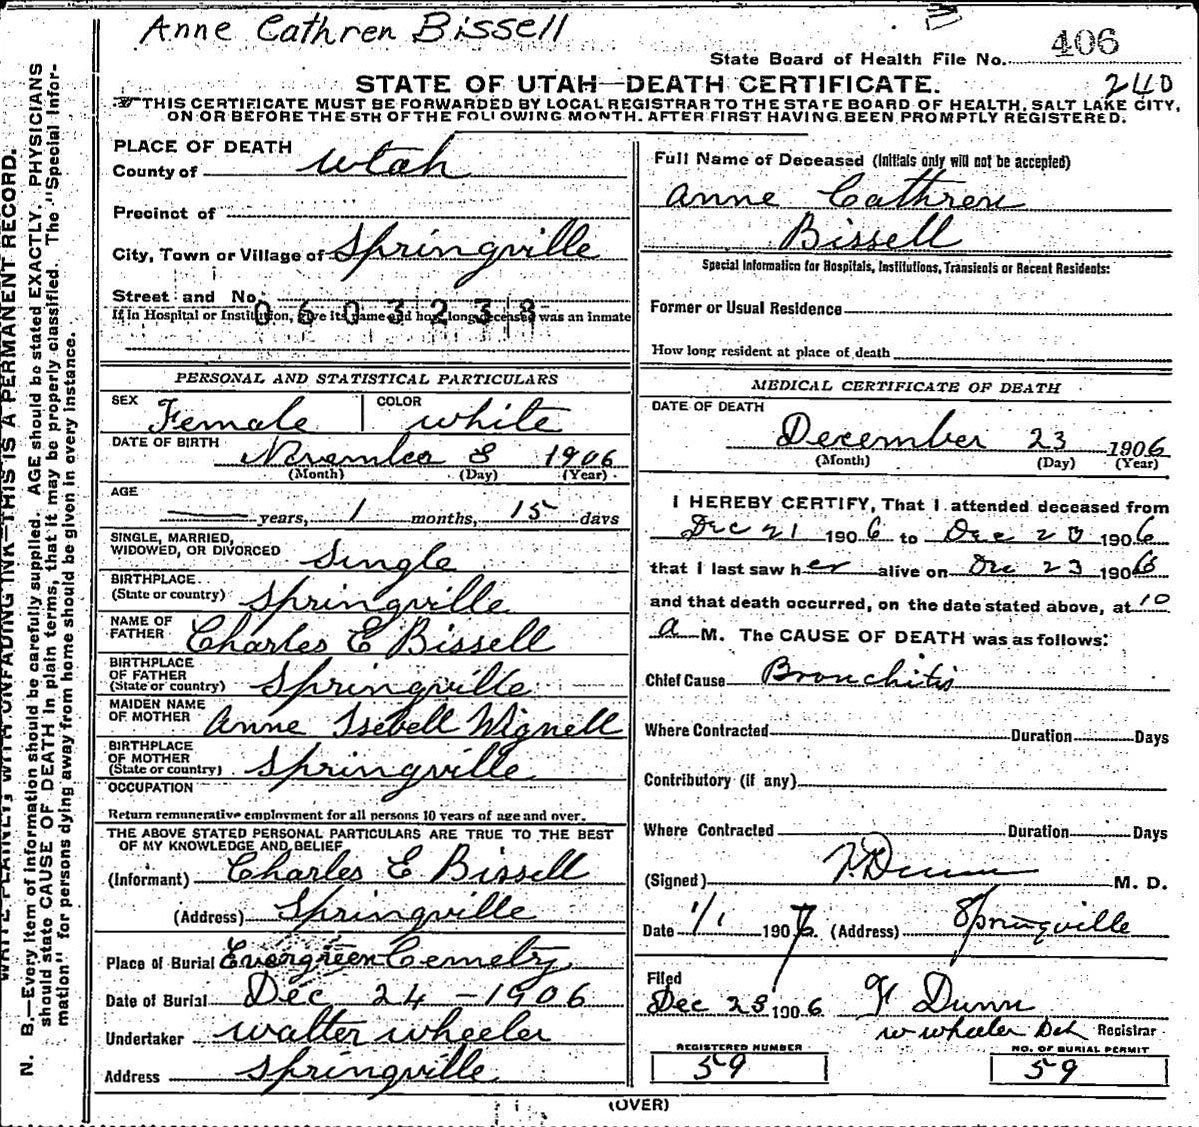 Anne Cathren Bissell
State Board of Health File No. 406
STATE OF UTAH—DEATH CERTIFICATE.
240
THIS CERTIFICATE MUST BE FORWARDED BY LOCAL REGISTRAR TO THE STATE BOARD OF HEALTH, SALT LAKE CITY,
ON OR BEFORE THE 5TH OF THE FOLLOWING MONTH. AFTER FIRST HAVING BEEN PROMPTLY REGISTERED.
PLACE OF DEATH
County of Utah
Precinct of
City, Town or Village of Springville
Street and No.
0603238
If in Hospital or Institution, give its name and how long deceased was an inmate
PERSONAL AND STATISTICAL PARTICULARS
SEX Female COLOR white
DATE OF BIRTH
November 8 1906
(Month) (Day) (Year)
AGE
years, 1 months, 15 days
SINGLE, MARRIED,
WIDOWED, OR DIVORCED Single
BIRTHPLACE
(State or country) Springville
NAME OF
FATHER Charles E Bissell
BIRTHPLACE
OF FATHER
(State or country) Springville
MAIDEN NAME
OF MOTHER Anne Isebell Wignell
BIRTHPLACE
OF MOTHER
(State or country) Springville
OCCUPATION
Return remunerative employment for all persons 10 years of age and over.
THE ABOVE STATED PERSONAL PARTICULARS ARE TRUE TO THE BEST
OF MY KNOWLEDGE AND BELIEF
(Informant) Charles E Bissell
(Address) Springville
Place of Burial Evergreen Cemetry
Date of Burial Dec 24 - 1906
Undertaker Walter Wheeler
Address Springville
Full Name of Deceased (Initials only will not be accepted)
Anne Cathren
Bissell
Special Information for Hospitals, Institutions, Transients or Recent Residents:
Former or Usual Residence
How long resident at place of death
MEDICAL CERTIFICATE OF DEATH
DATE OF DEATH
December 23 1906
(Month) (Day) (Year)
I HEREBY CERTIFY, That I attended deceased from
Dec 21 1906 to Dec 1906
that I last saw her alive on Dec 23 1906
and that death occurred, on the date stated above, at 10
a M. The CAUSE OF DEATH was as follows:
Chief Cause Bronchitis
Where Contracted Duration Days
Contributory (if any)
Where Contracted Duration Days
(Signed) Dunn M. D.
Date 1/1 1907. (Address) Springville
Filed
Dec 23 1906 Dunn
W Wheeler Registrar
REGISTERED NUMBER
59
NO. OF BURIAL PERMIT
59
(OVER)
WRITE PLAINLY, WITH UNFADING INK—THIS IS A PERMANENT RECORD.
N. B.—Every item of information should be carefully supplied. AGE should be stated EXACTLY, PHYSICIANS
should state CAUSE OF DEATH in plain terms, that it may be properly classified. The "Special Infor-
mation" for persons dying away from home should be given in every instance.